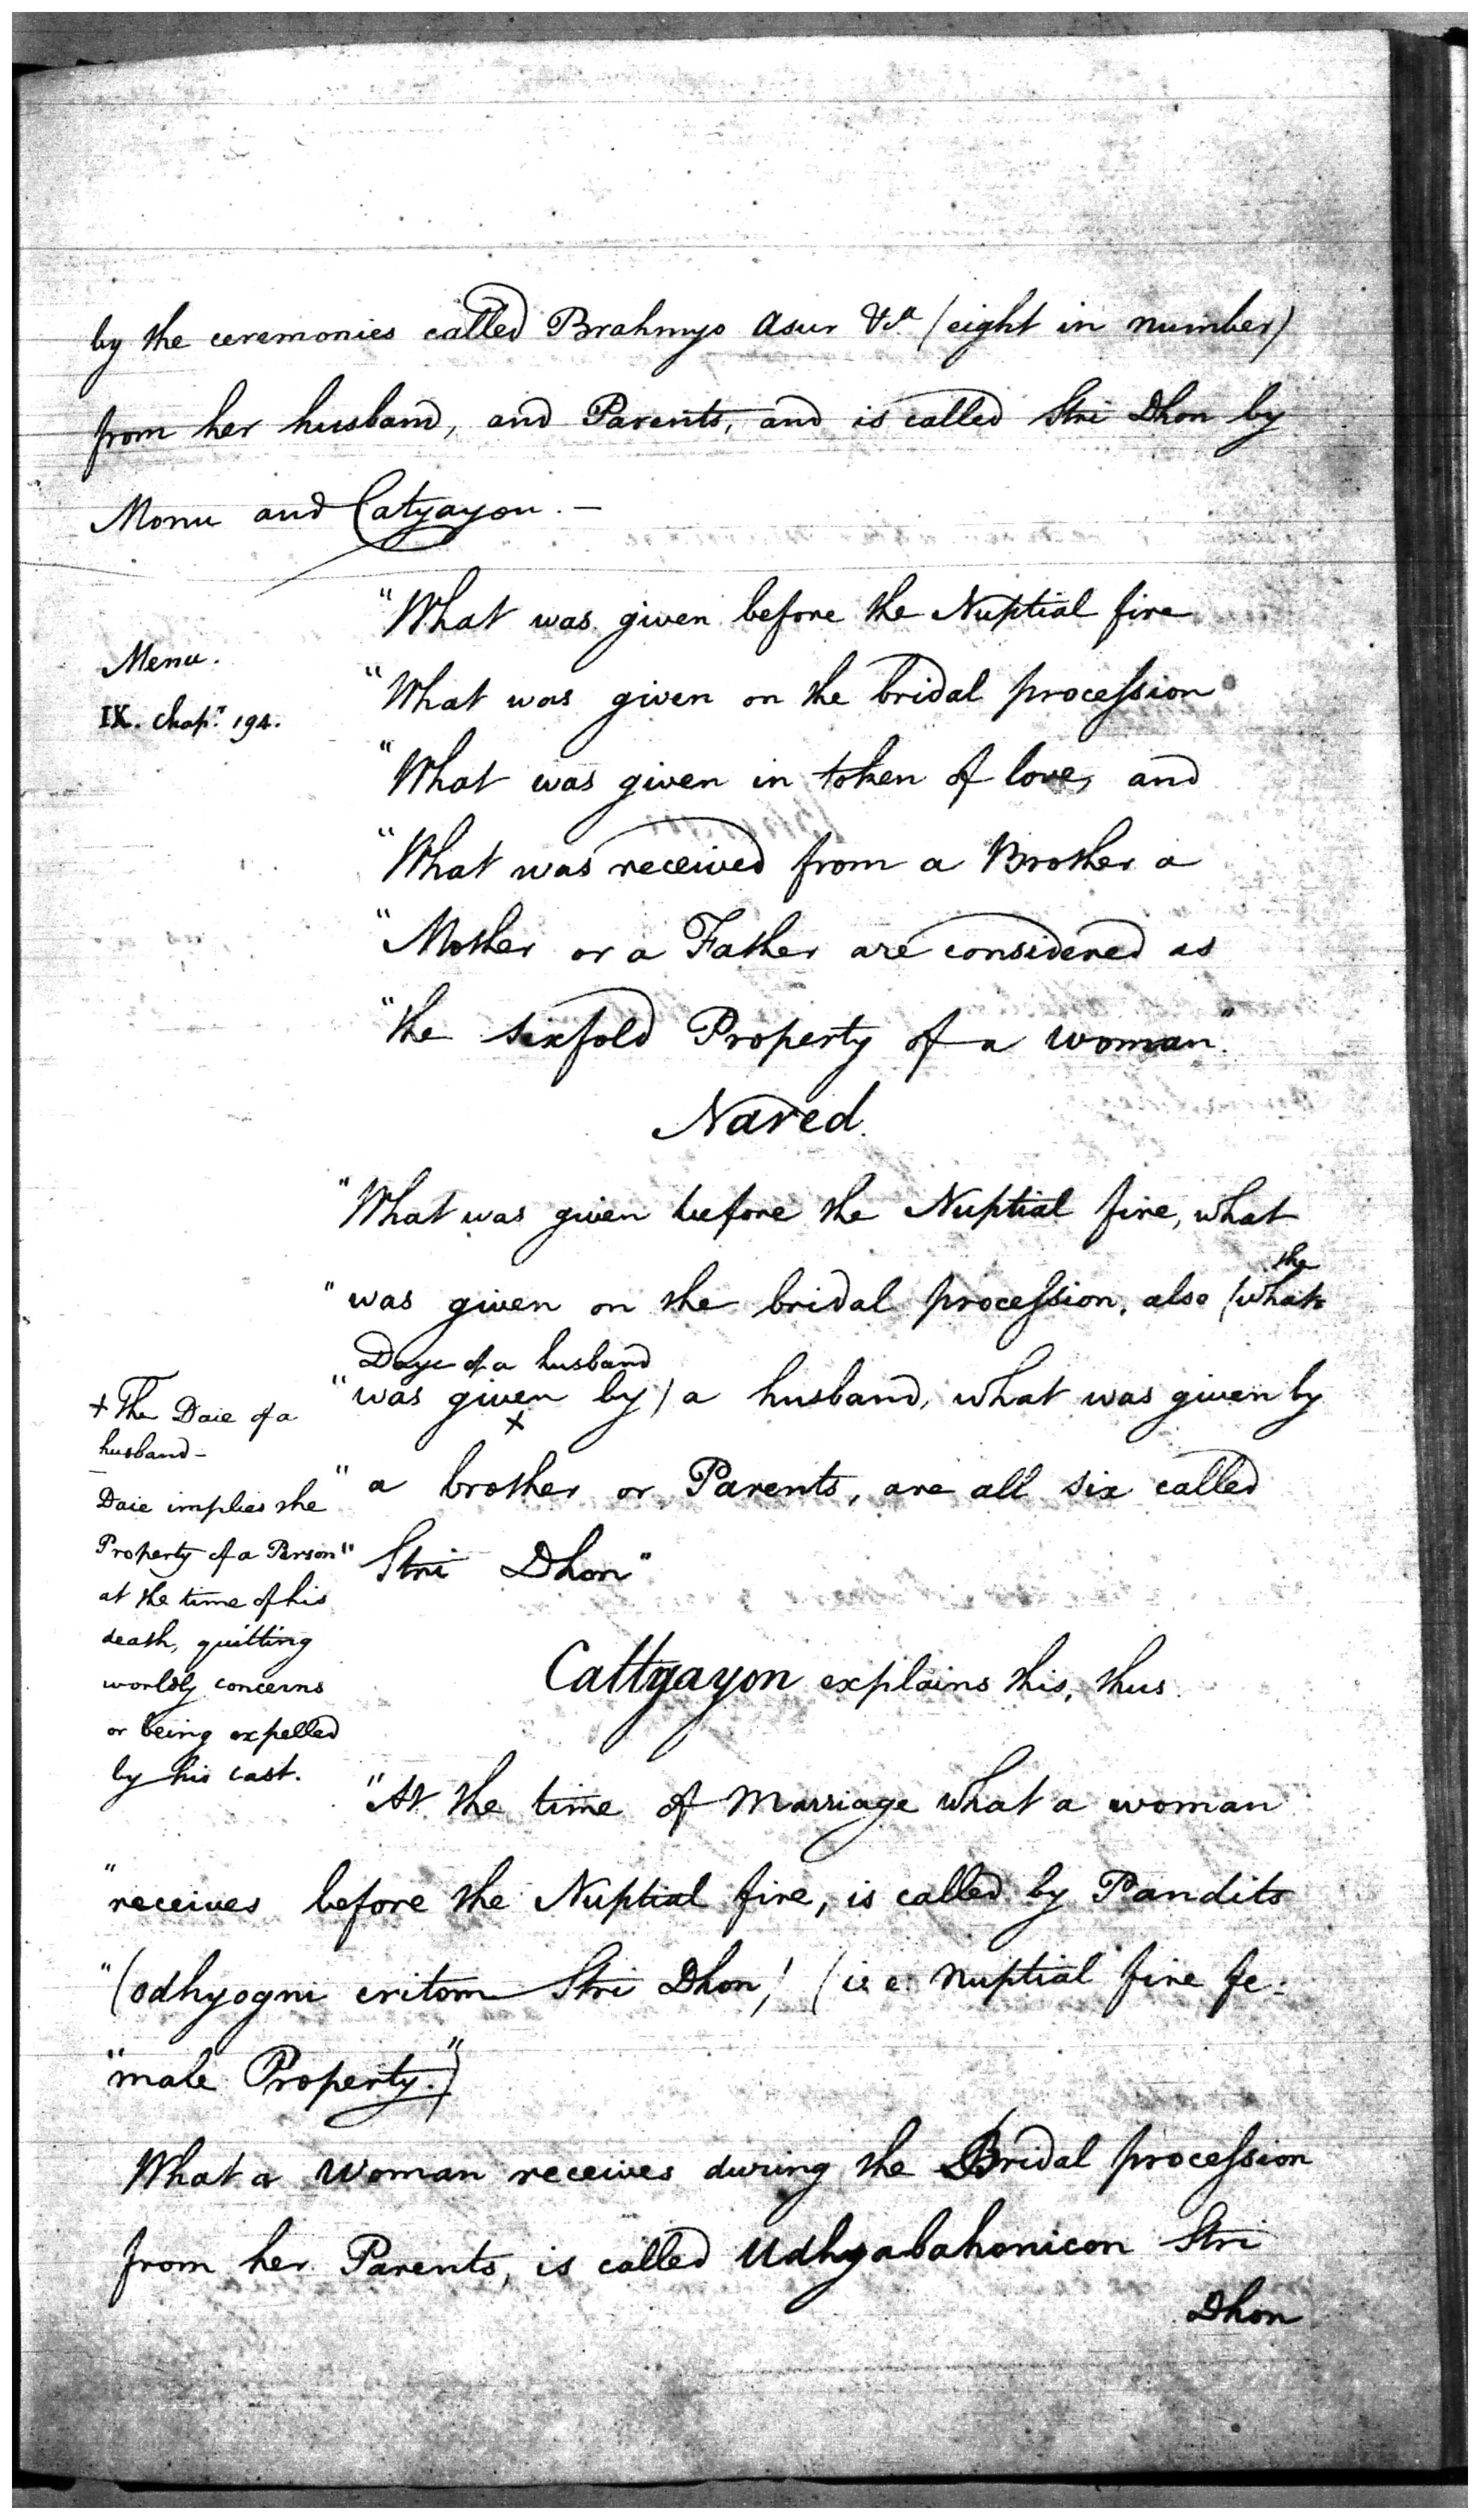 by the ceremonies called Brahmyo Asur &ca (eight in number)
from her husband, and Parents, and is called Stri Dhon by
Monu and Catyayon. —
"What was given before the Nuptial fire
Menu.
IX. Chapr. 194.
"What was given on the bridal procession
"What was given in token of love, and
"What was received from a Brother a
"Mother or a Father are considered as
"the sixfold Property of a woman."
Nared.
"What was given before the Nuptial fire, what
the
"was given on the bridal procession, also (what
Daye of a husband
"was given by) a husband, what was given by
x
"a brother or Parents, are all six called
"Stri Dhon"
+ The Daie of a
husband –
Daie implies the
Property of a Person
at the time of his
death, quitting
worldly concerns
or being expelled
by his cast.
Cattyayon explains this, thus.
"At the time of Marriage what a woman
"receives before the Nuptial fire, is called by Pandits
"(Odhyogni critom Stri Dhon,) (i.e. nuptial fire fe:
"male Property.")
What a Woman receives during the Bridal procession
from her Parents, is called Udhyabahonicon Stri
Dhon